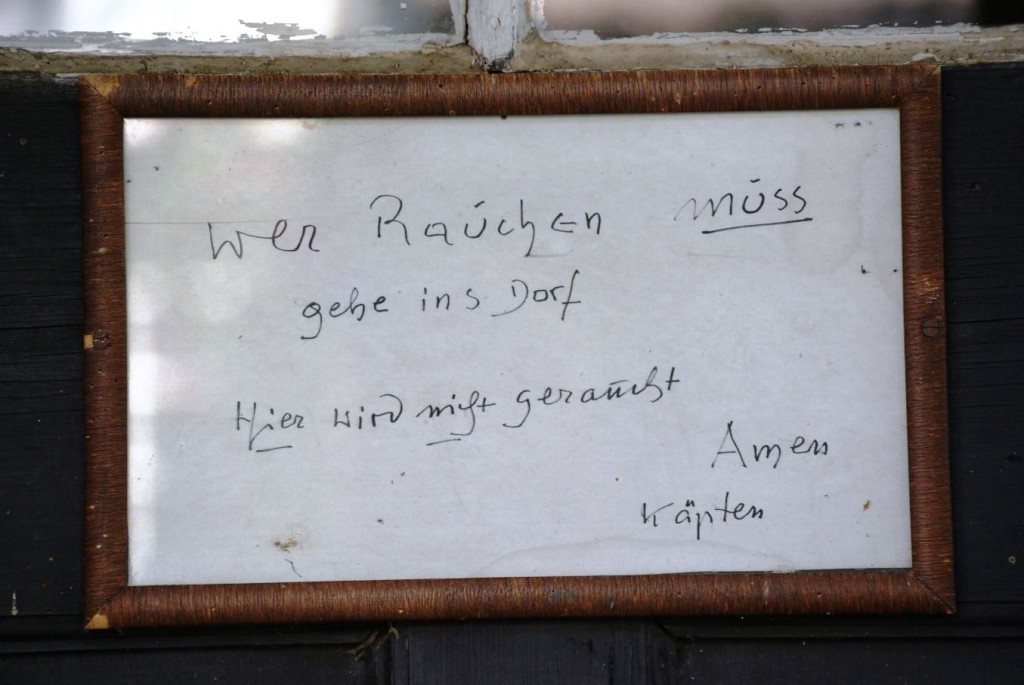 wer Rauchen muss
gehe ins Dorf
Hier wird nicht geraucht
Amen
Käpten